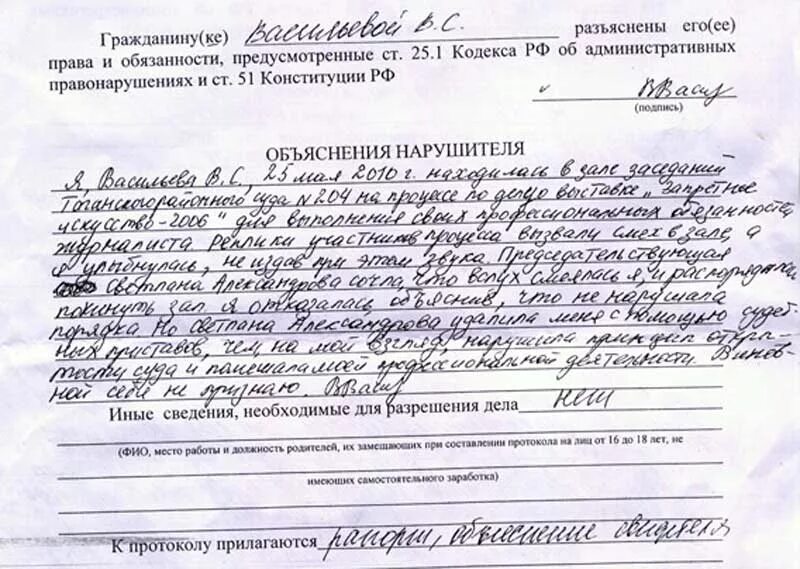 Гражданину(ке) Васильевой В.С. разъяснены его(ее)
права и обязанности, предусмотренные ст. 25.1 Кодекса РФ об административных
правонарушениях и ст. 51 Конституции РФ
ВВасил
(подпись)
ОБЪЯСНЕНИЯ НАРУШИТЕЛЯ
Я, Васильева В.С., 25 мая 2010 г. находилась в зале заседаний
Таганского районного суда №204 на процессе по делу выставке „Запретное
искусство-2006" для выполнения своих профессиональных обязанностей
журналиста. Реплики участников процесса вызвали смех в зале, а
я улыбнулась, не издав при этом звука. Председательствующая
Светлана Александрова сочла, что вслух смеялась я, и распорядилась
покинуть зал. Я отказалась, объяснив, что не нарушала
порядка. Но Светлана Александрова удалила меня с помощью судеб-
ных приставов, чем, на мой взгляд, нарушила принцип откры-
тости суда и помешала моей профессиональной деятельности. Винов-
ной себя не признаю. ВВасил
Иные сведения, необходимые для разрешения дела нет
(ФИО, место работы и должность родителей, их замещающих при составлении протокола на лиц от 16 до 18 лет, не
имеющих самостоятельного заработка)
К протоколу прилагаются рапорт, объяснение свидетеля